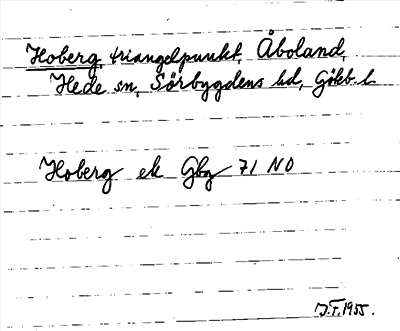 Hoberg, triangelpunkt, Åboland,
Hede sn, Sörbygdens hd, Gbg. l.
Hoberg ek Gbg 71 NO
J.T. 1955.